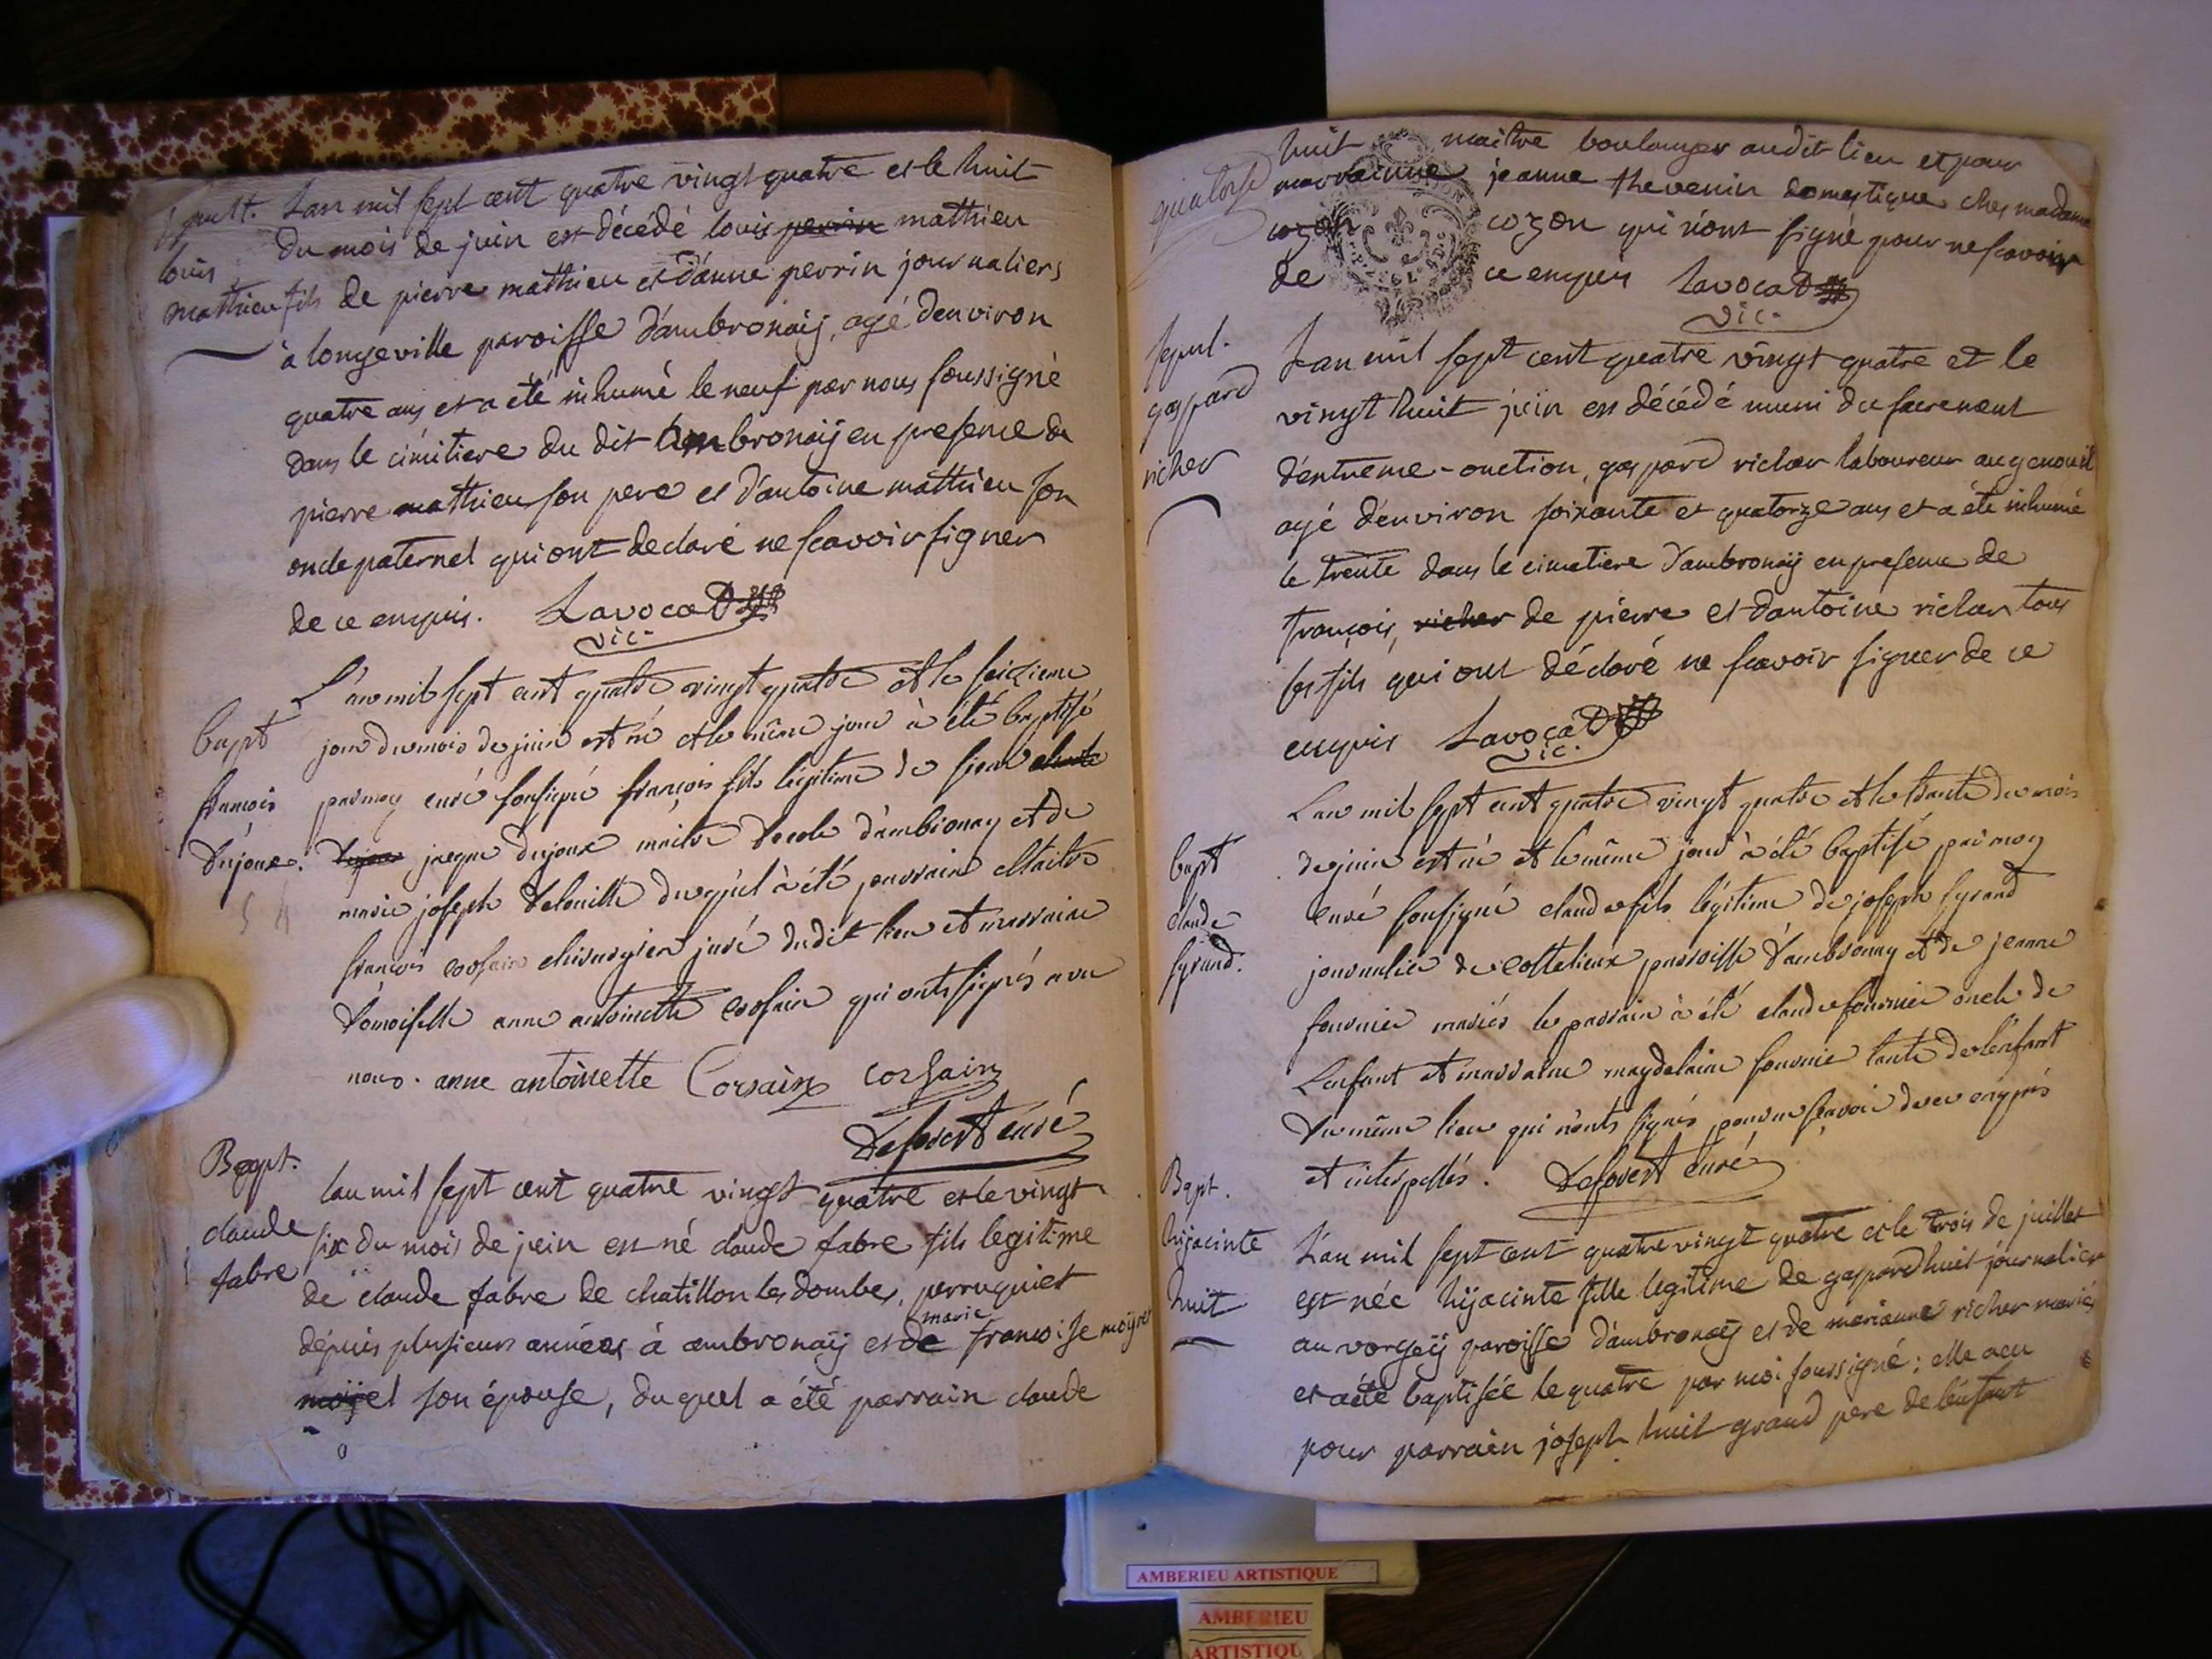 sepult.
louis
mathieu
Lan mil sept cent quatre vingt quatre et le huit
du mois de juin est décédé louis perrin mathieu
fils de pierre mathieu et d'anne perrin journaliers
à longeville paroisse d'ambronaÿ, agé d'environ
quatre ans et a été inhumé le neuf par nous soussigné
dans le cimitiere du dit ambronaÿ en presence de
pierre mathieu son pere et d'antoine mathieu son
oncle paternel qui ont declaré ne scavoir signer
de ce enquis. Lavocat
vic.
bapt
françois
Dujoux.
L'an mil sept cent quatre vingt quatre et le seizieme
jour du mois de juin est né et le même jour à été baptisé
par moy curé sousigné françois fils légitime de sieur claude
Dujoux jacque dujoux maitre d'ecole d'ambronay et de
marie joseph duquel à été parrain Maitre
françois corsain chirurgien juré dudit lieu et marraine
Domoiselle anne antoinette corsain qui onts signés avec
nous. anne antoinette Corsain corsain
Defovert curé
Bapt.
claude
fabre
lan mil sept cent quatre vingt quatre et le vingt
six du mois de juin est né claude fabre fils legitime
de claude fabre de chatillon les dombes, perruquier
dépuis plusieurs années à ambronaÿ et de marie francoise
son épouse, duquel a été parrain claude
quatorse
huit maitre boulanger audit lieu et pour
marrainne jeanne thevenin domestique ches madame
cozon cozon qui n'ont signé pour ne scavoir
de ce enquis Lavocat
vic.
sepul.
gaspard
richer
Lan mil sept cent quatre vingt quatre et le
vingt huit juin est décédé muni du sacrement
d'entreme-onction, gaspard richer laboureur au genouil
agé d'environ soixante et quatorze ans et a été inhumé
le trente dans le cimetiere d'ambronaÿ en presence de
françois, richer de pierre et d'antoine richer tous
ses fils qui ont déclaré ne scavoir signer de ce
enquis Lavocat
vic.
bapt
claude
syrand.
L'an mil sept cent quatre vingt quatre et le trante du mois
de juin est né et le même jour à été baptisé par moy
curé sousigné claude fils légitime de joseph syrand
journalier de Cottelieux parroisse d'ambronay et de jeanne
fournier mariés le parrain à été claude fournier oncle de
L'enfant et marraine magdelaine fournie tante de l'enfant
du même lieu qui n'onts signés pour ne sçavoir de ce enquis
et interpellés. Defovert curé
Bapt.
hijacinte
huit
L'an mil sept cent quatre vingt quatre et le trois de juillet
est née hijacinte fille legitime de gaspard huit journalier
au vorgeÿ paroisse d'ambronaÿ et de marianne richer mariés
et a été baptisée le quatre par moi soussigné; elle a eu
pour parrain joseph huit grand pere de l'enfant
AMBERIEU ARTISTIQUE
AMBERIEU
ARTISTIQU